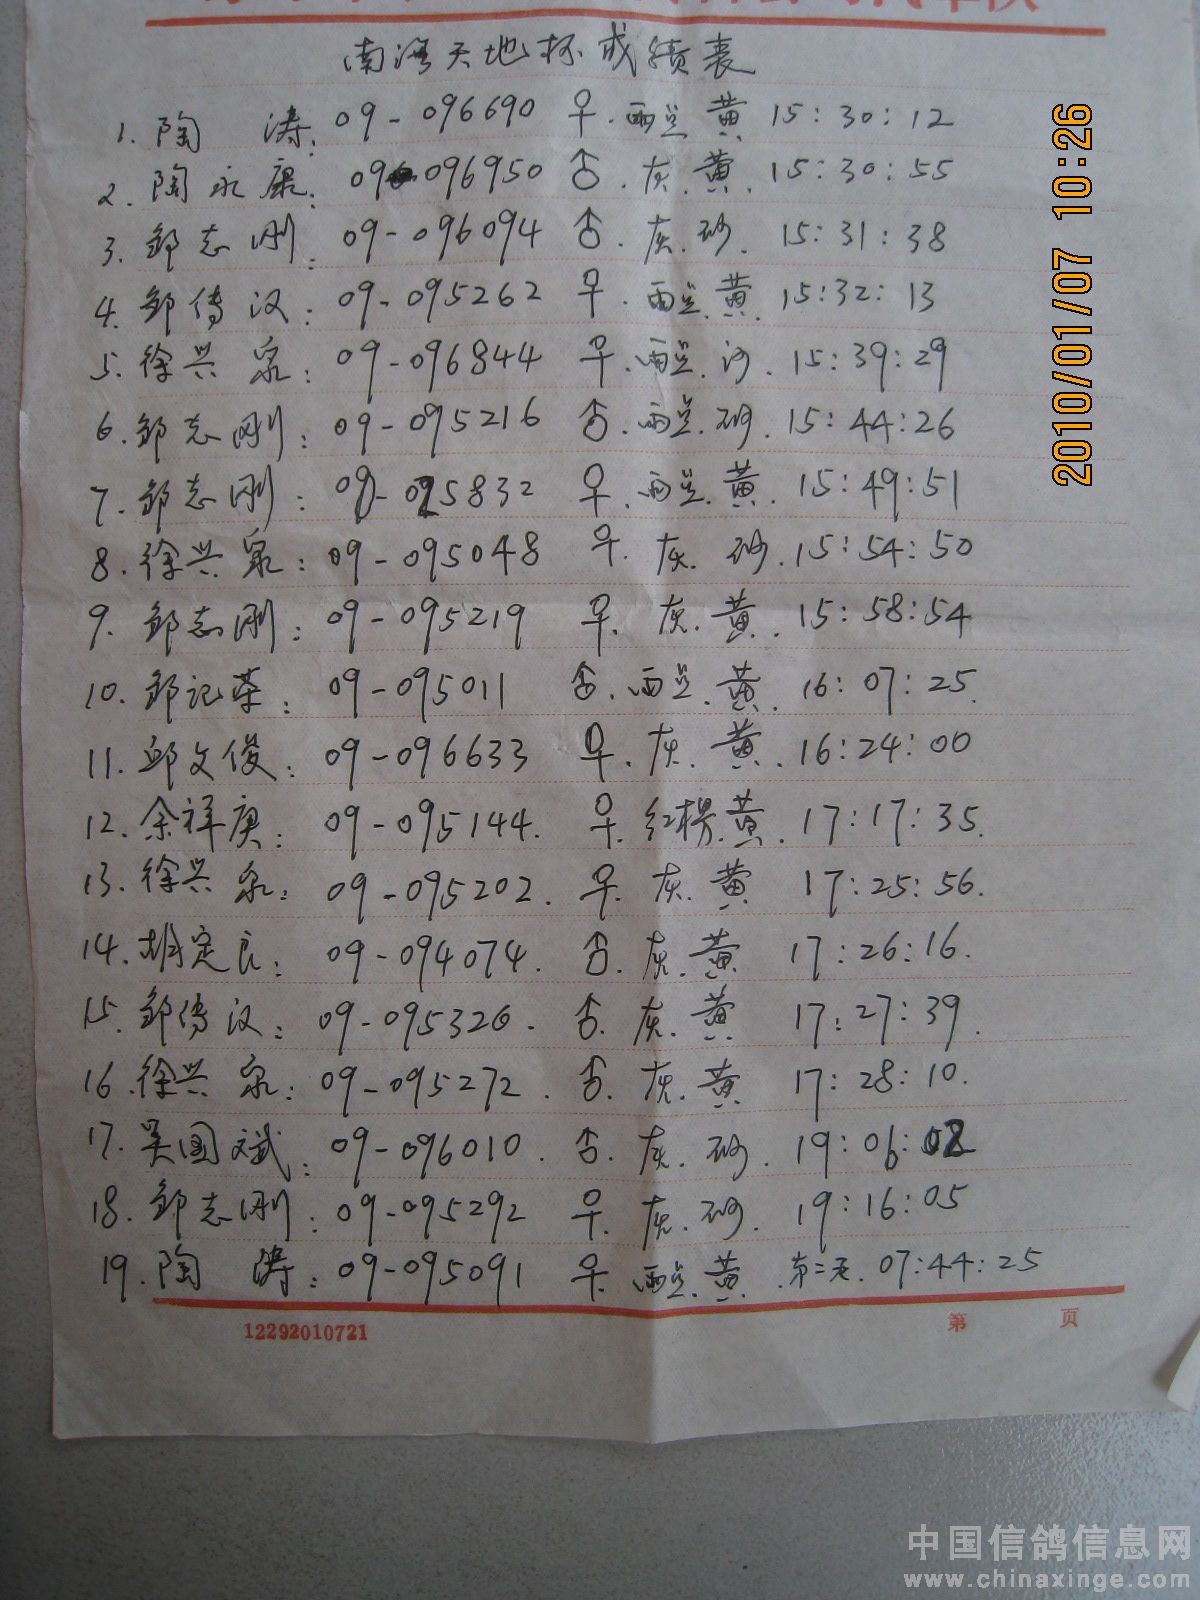 南海天地杯成绩表
1. 陶 涛: 09-096690 ♀. 雨点 黄 15:30:12
2. 陶永康: 09-096950 ♂. 灰. 黄. 15:30:55
3. 邹志刚: 09-096094 ♂. 灰. 砂. 15:31:38
4. 邹传汉: 09-095262 ♀. 雨点. 黄. 15:32:13
5. 徐兴泉: 09-096844 ♀. 雨点. 沙. 15:39:29
6. 邹志刚: 09-095216 ♂. 雨点. 砂. 15:44:26
7. 邹志刚: 09-095832 ♀. 雨点. 黄. 15:49:51
8. 徐兴泉: 09-095048 ♀. 灰. 砂. 15:54:50
9. 邹志刚: 09-095219 ♀. 灰. 黄. 15:58:54
10. 邹记荣: 09-095011 ♂. 雨点. 黄. 16:07:25.
11. 邱文俊: 09-096633 ♀. 灰. 黄. 16:24:00
12. 余祥庚: 09-095144. ♀. 红楞. 黄. 17:17:35.
13. 徐兴泉: 09-095202. ♀. 灰. 黄 17:25:56.
14. 胡定良: 09-094074. ♂. 灰. 黄 17:26:16.
15. 邹传汉: 09-095326. ♂. 灰. 黄 17:27:39.
16. 徐兴泉: 09-095272. ♂. 灰. 黄 17:28:10.
17. 吴国斌: 09-096010. ♂. 灰. 砂. 19:06:02
18. 邹志刚: 09-095292 ♀. 灰. 砂. 19:16:05
19. 陶 涛: 09-095091 ♀. 雨点. 黄. 第二天. 07:44:25
12292010721 第 页
2010/01/07 10:26
中国信鸽信息网
www.chinaxinge.com